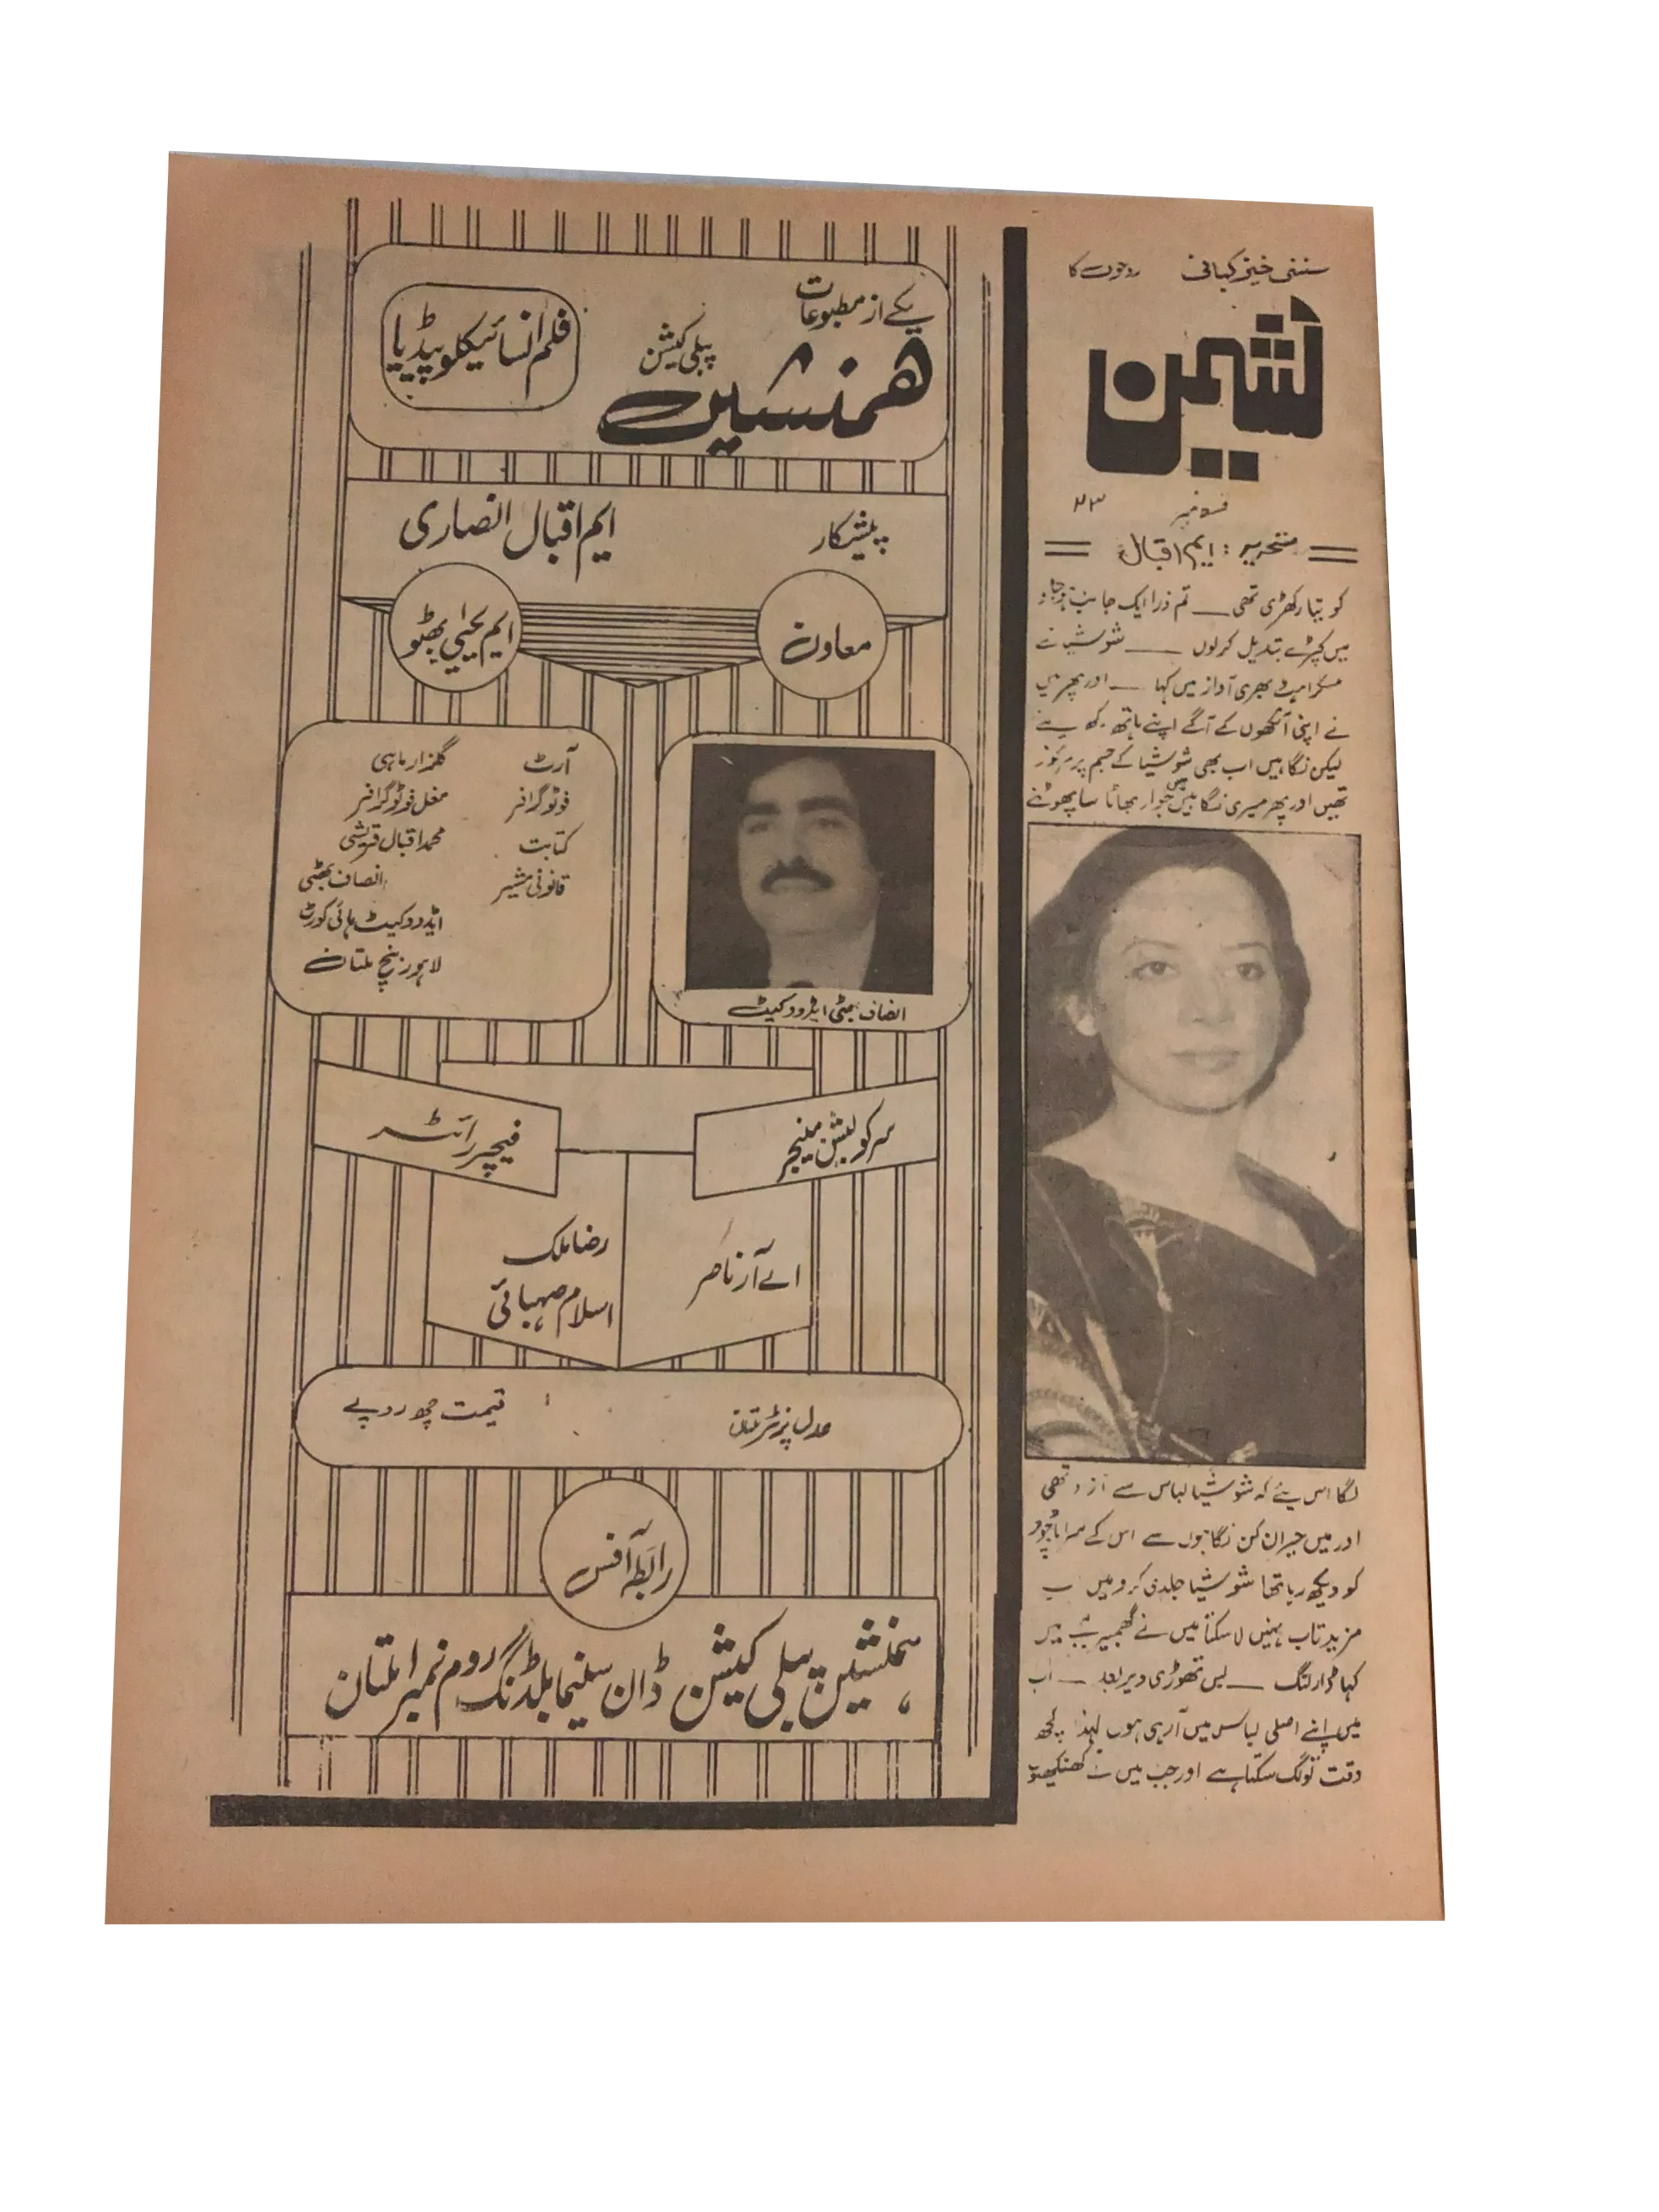 سنسنی خیز کہانی روحوں کا
نشیمن
قسط نمبر ۲۳
تحریر : ایم اقبال
کو تیار کھڑی تھی — تم ذرا ایک جانب ہوجاؤ
میں کپڑے تبدیل کرلوں — شوشیا نے
مسکراہٹ بھری آواز میں کہا — اور پھر میں
نے اپنی آنکھوں کے آگے اپنے ہاتھ رکھ لئے
لیکن نگاہیں اب بھی شوشیا کے جسم پر مرکوز
تھیں اور پھر میری نگاہیں میں جوار بھاٹا سا پھوٹنے
لگا اس لئے کہ شوشیا لباس سے آزاد تھی
اور میں حیران کن نگاہوں سے اس کے سراپا وجود
کو دیکھ رہا تھا شوشیا جلدی کرو میں اب
مزید تاب نہیں لا سکتا میں نے گھمبیر لہجے میں
کہا ڈارلنگ — بس تھوڑی دیر بعد — اب
میں اپنے اصلی لباس میں آرہی ہوں لہذا کچھ
وقت تو لگ سکتا ہے اور جب میں نے کھنکھیوں
یکے از مطبوعات
ھمنشین پبلی کیشن
فلم انسائیکلوپیڈیا
پیشکار ایم اقبال انصاری
معاون ایم یحیٰی بھٹو
آرٹ گلزار ماہی
فوٹوگرافر مغل فوٹوگرافر
کتابت محمد اقبال قریشی
قانونی مشیر انصاف بھٹی
ایڈووکیٹ ہائی کورٹ
لاہور بنچ ملتان
انصاف بھٹی ایڈووکیٹ
سرکولیشن مینجر
اے آر ناصر
فیچر رائٹر
رضا ملک
اسلام صہبائی
عدل پرنٹرز ملتان قیمت چھ روپے
رابطہ آفس
ہمنشین پبلی کیشن ڈان سنیما بلڈنگ روم نمبر ۱ ملتان